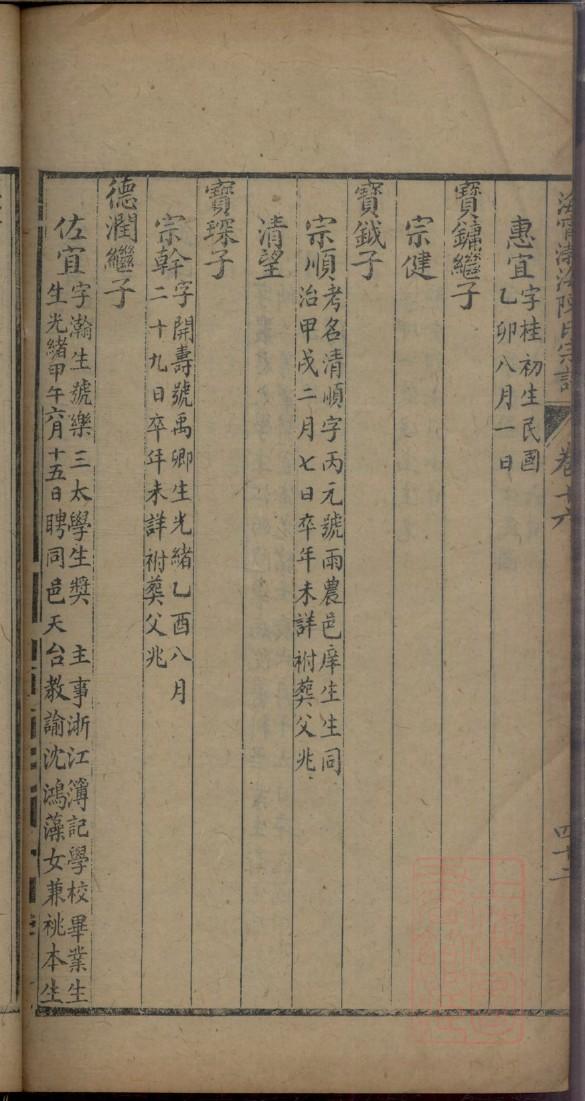 海寧渤海陳氏宗譜
卷十六
四十二
惠宜 字桂初生民國
乙卯八月一日
寶鏞繼子
宗健
寶鉞子
宗順 考名清順字丙元號雨農邑庠生生同
治甲戌二月七日卒年未詳祔葬父兆
清望
寶琛子
宗幹 字開壽號禹卿生光緒乙酉八月
二十九日卒年未詳祔葬父兆
德潤繼子
佐宜 字瀚生號樂三太學生獎 主事浙江簿記學校畢業生
生光緒甲午六月十五日聘同邑天台教諭沈鴻藻女兼祧本生